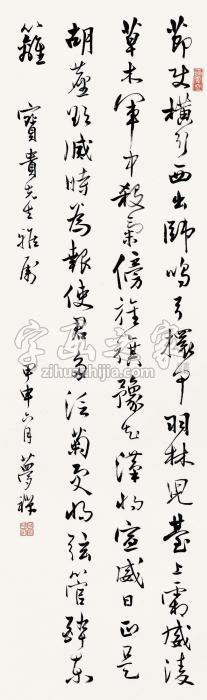 節使橫行西出師鳴弓擐甲羽林兒臺上霜威凌
草木軍中殺氣傍旌旗豫知漢將宣威日正是
胡塵欲滅時為報使君多泛菊更將弦管醉東
籬
寶貴先生雅屬
甲申六月 夢禪
字画专家
zihuazhijia.com